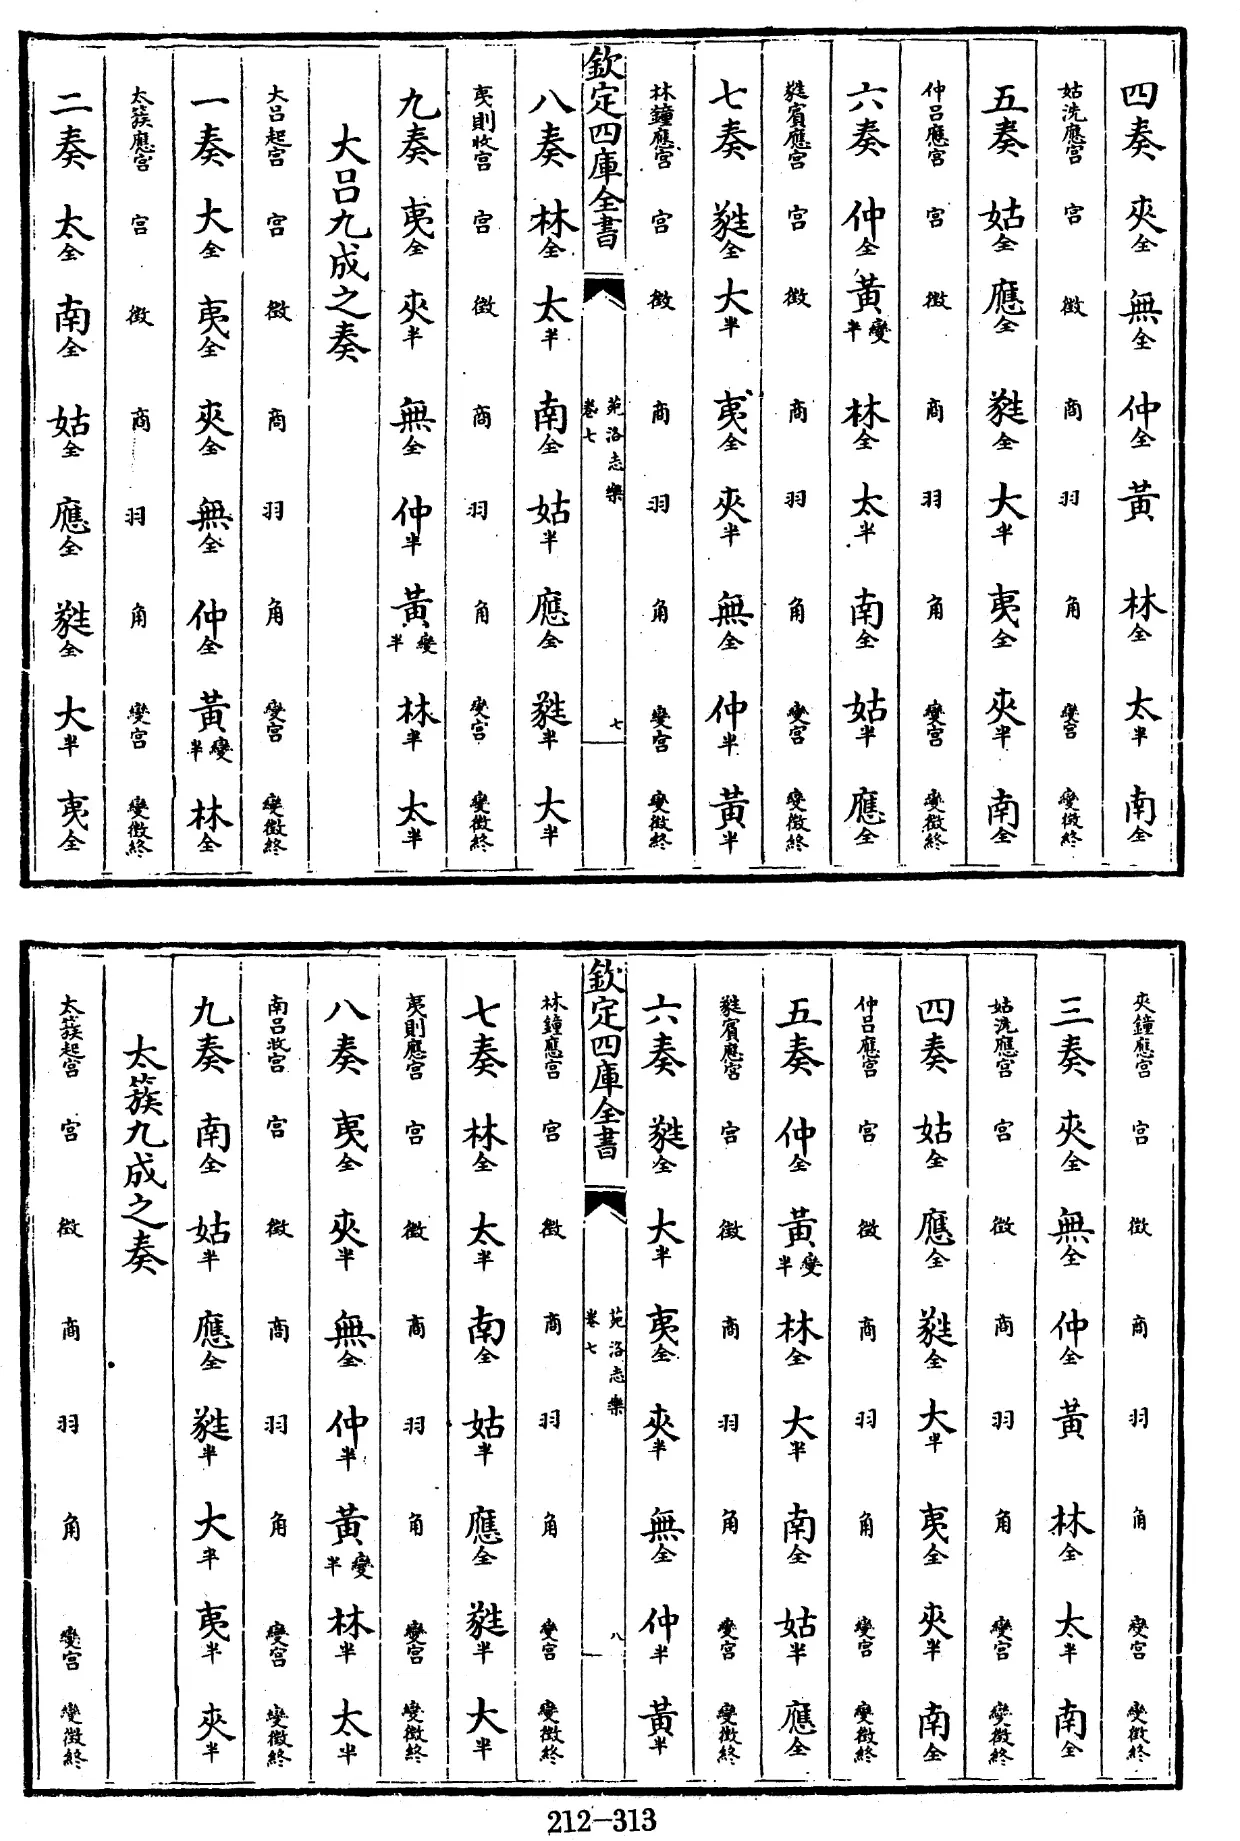 四奏 夾全 無全 仲全 黃 林全 太半 南全
姑洗應宮 宮 徵 商 羽 角 變宮 變徵終
五奏 姑全 應全 蕤全 大半 夷全 夾半 南全
仲呂應宮 宮 徵 商 羽 角 變宮 變徵終
六奏 仲全 黃變半 林全 太半 南全 姑半 應全
蕤賓應宮 宮 徵 商 羽 角 變宮 變徵終
七奏 蕤全 大半 夷全 夾半 無全 仲半 黃半
林鐘應宮 宮 徵 商 羽 角 變宮 變徵終
欽定四庫全書 苑洛志樂 卷七 七
八奏 林全 太半 南全 姑半 應全 蕤半 大半
夷則收宮 宮 徵 商 羽 角 變宮 變徵終
九奏 夷全 夾半 無全 仲半 黃變半 林半 太半
大呂九成之奏
大呂起宮 宮 徵 商 羽 角 變宮 變徵終
一奏 大全 夷全 夾全 無全 仲全 黃變半 林全
太簇應宮 宮 徵 商 羽 角 變宮 變徵終
二奏 太全 南全 姑全 應全 蕤全 大半 夷全
夾鐘應宮 宮 徵 商 羽 角 變宮 變徵終
三奏 夾全 無全 仲全 黃 林全 太半 南全
姑洗應宮 宮 徵 商 羽 角 變宮 變徵終
四奏 姑全 應全 蕤全 大半 夷全 夾半 南全
仲呂應宮 宮 徵 商 羽 角 變宮 變徵終
五奏 仲全 黃變半 林全 大半 南全 姑半 應全
蕤賓應宮 宮 徵 商 羽 角 變宮 變徵終
六奏 蕤全 大半 夷全 夾半 無全 仲半 黃半
欽定四庫全書 苑洛志樂 卷七 八
林鐘應宮 宮 徵 商 羽 角 變宮 變徵終
七奏 林全 太半 南全 姑半 應全 蕤半 大半
夷則應宮 宮 徵 商 羽 角 變宮 變徵終
八奏 夷全 夾半 無全 仲半 黃變半 林半 太半
南呂收宮 宮 徵 商 羽 角 變宮 變徵終
九奏 南全 姑半 應全 蕤半 大半 夷半 夾半
太簇九成之奏
太簇起宮 宮 徵 商 羽 角 變宮 變徵終
212-313